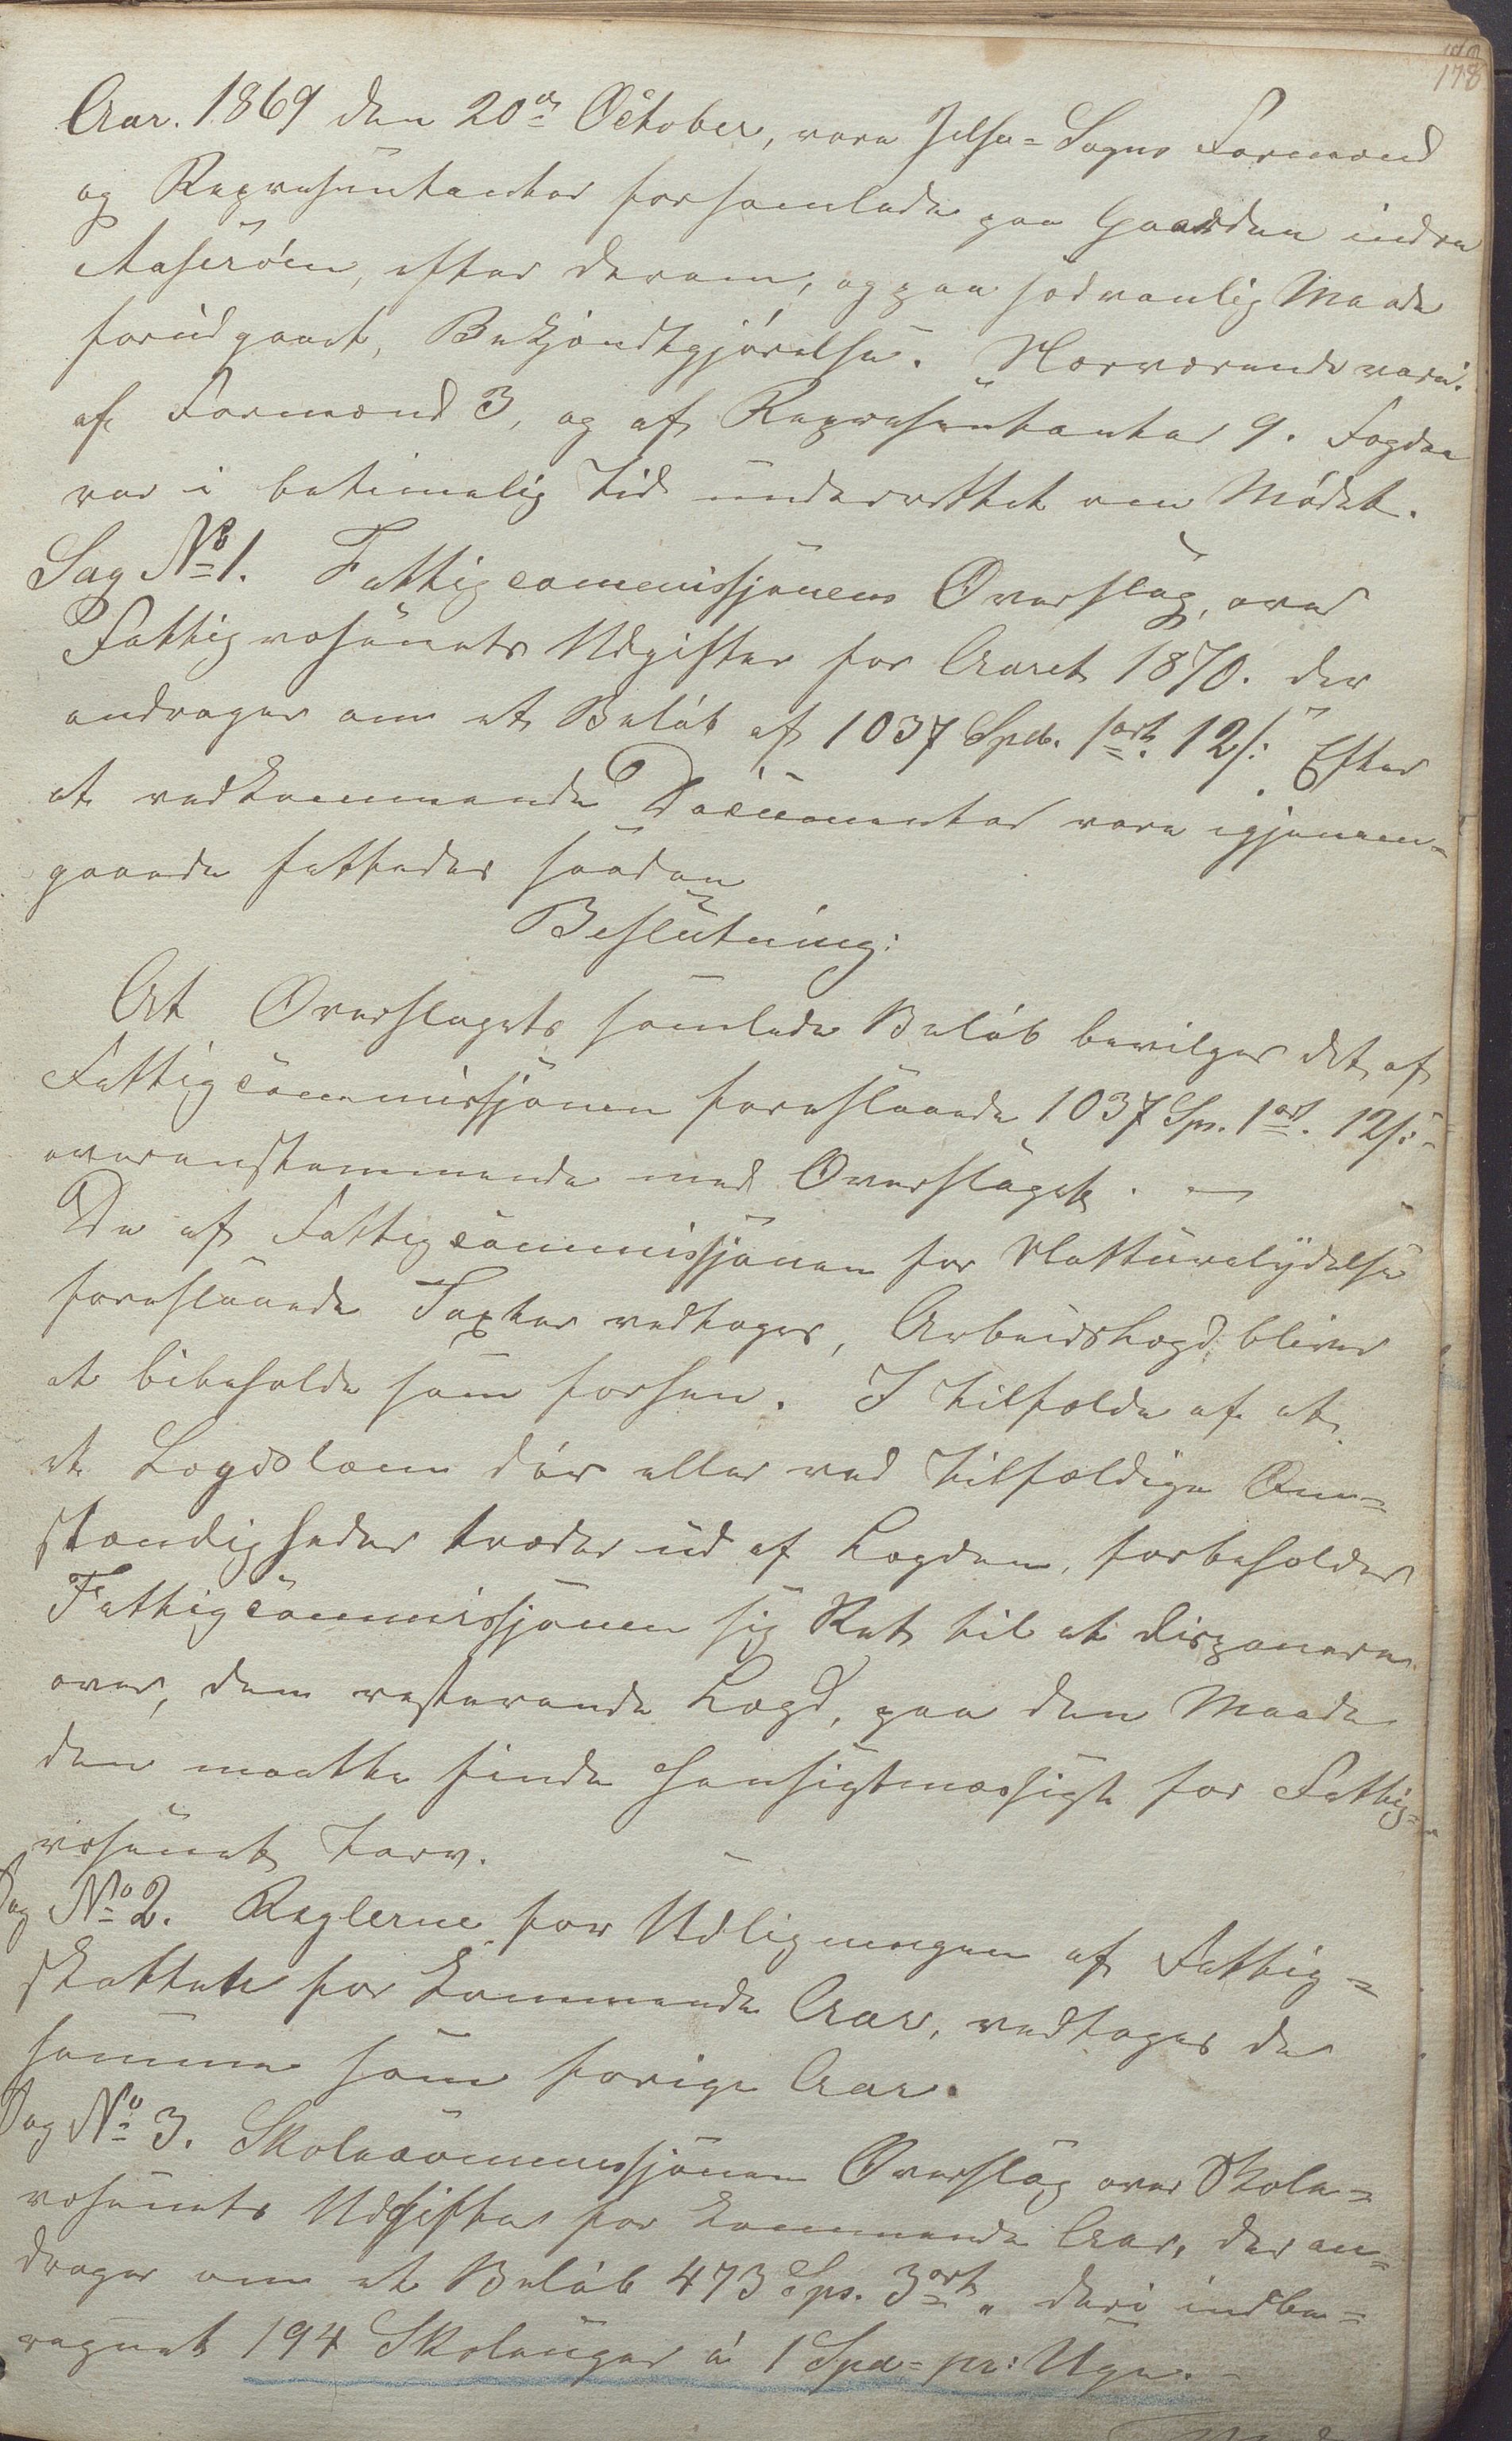 178
Aar. 1869 den 20de October, vare Jelse=Sogns Formænd
og Repræsentanter forsamlede paa Gaarden indre
Aaserøen, efter derom, og paa sædvanlig Maade
forudgaaet, Bekjændtgjørelse. Nærværende vare:
af Formænd 3, og af Repræsentanter 9. Fogden
var i betimelig Tid underrettet om Mødet.
Sag No 1. Fattigcommissjonens Overslag, over
Fattigvæsenets Udgifter for Aaret 1870. der
andrager om et Beløb af 1037 Spd. 1 ort. 12 s: Efter
at vedkommende Documenter vare igjenem=
gaaede fattedes saadan
Beslutning:
At Overslagets samlede Beløb bevilges det af
Fattigcommissjonen foreslaaede 1037 Sps. 1 ort. 12 s:
overenstemmende med Overslaget. —
De af Fattigcommissjonen for Natturelydelse
foreslaaede Taxter vedtages, Arbeidslægd bliver
at bibeholde som forhen. I tilfælde af at
et Lægdslem dør eller ved tilfældige Om=
stændigheder træder ud af Lægden, forbeholder
Fattigcommissjonen sig Ret til at disponere
over, dem resterende Lægd, paa den Maade
den maatte finde hensigtmæssigt for Fattig=
væsenet tarv.
Sag No 2. Reglerne for Udligningen af Fattig=
skatten for kommende Aar, vedtages de
samme som forige Aar.
Sag No 3. Skolecommissjonen Overslag over Skole=
væsenets Udgifter for kommende Aar, der an=
drager om et Beløb 473 Sps. 3 ort. deri indbe=
regnet 194 Skoleuger á 1 Spd= pr: Uge. —